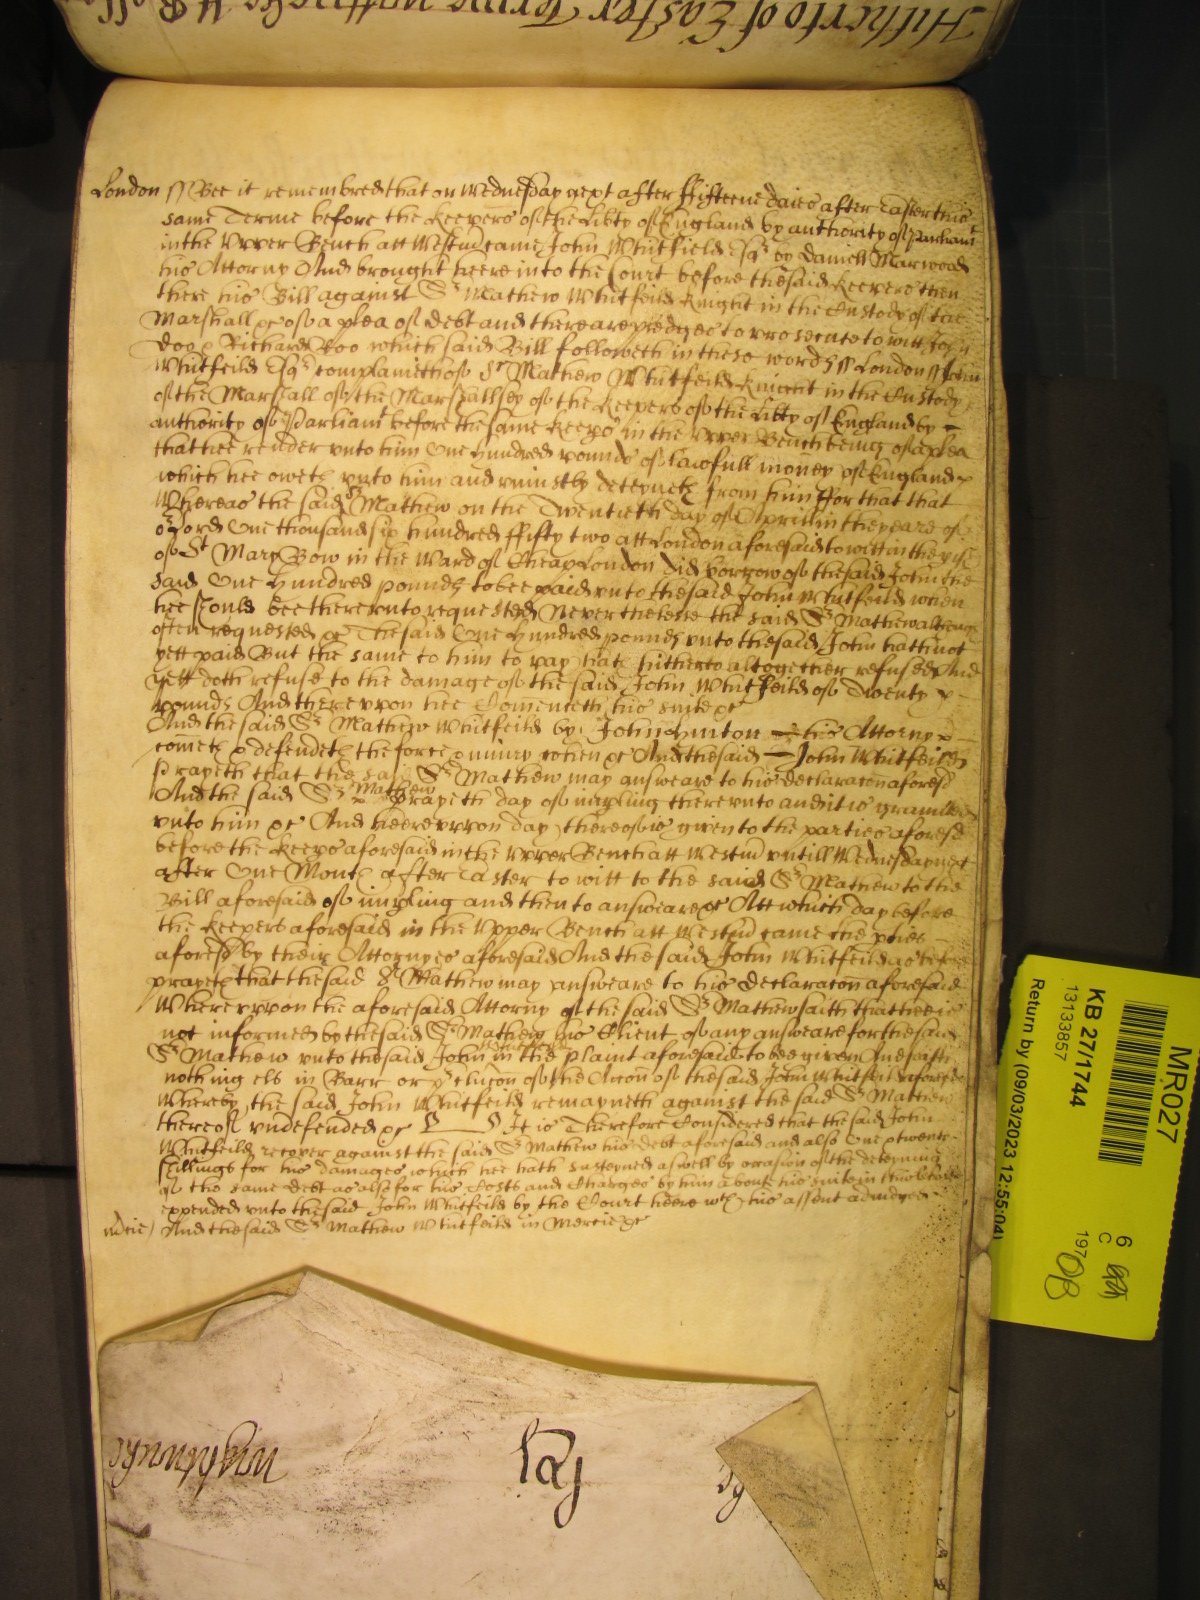 Hitherto of Easter Terme
London ss Bee it remembred that on Wednesday next after ffifteene daies after Easter this
same Terme before the Keepers of the Lib'ty of England by authority of Parliamt
in the Vpper Bench att Westm' came John Whitfeild Esqr by Daniell Marwood
his Attorny And brought heere into the Court before the said Keepers then
there his Bill against Sr Mathew Whitfeild Knight in the Custody of the
Marshall &c of a plea of debt and there are pledges to prosecute to witt John
Doo & Richard Roo which said Bill followeth in these words ss London ss John
Whitfeild Esqr complaineth of Sr Mathew Whitfeild Knight in the Custody
of the Marshall of the Marshallsey of the Keepers of the Lib'ty of England by
authority of Parliamt before the same Keeps in the Vpper Bench being of a plea
that hee render vnto him One hundred pounds of lawfull money of England
which hee oweth vnto him and uniustly deteyneth from him ffor that that
Whereas the said Sr Mathew on the Twentieth day of Aprill in the yeare of
or Lord One thousand six hundred ffifty two att London aforesaid to witt in the p'ish
of St Mary Bow in the Ward of Cheap London did borrow of the said John the
said One hundred pounds to bee paid vnto the said John Whitfeild when
hee should bee therevnto requested Neverthelesse the said Sr Mathew although
often requested &c The said One hundred pounds vnto the said John hath not
yett paid But the same to him to pay hath hitherto altogether refused And
yett doth refuse to the damage of the said John Whitfeild of Twenty
pounds And therevpon hee Comenceth his suite &c
And the said Sr Mathew Whitfeild by John Hinton his Attorny
cometh & defendeth the force & iniury when &c And the said John Whitfeild
Prayeth that the said Sr Mathew may answeare to his declaracon aforesd
And the said Sr Mathew Prayeth day of imp'ling therevnto and it is graunted
vnto him &c And heerevppon day thereof is given to the parties aforesd
before the Keeps aforesaid in the Vpper Bench att Westm' vntill Wednesday next
after One Month after Easter to witt to the said Sr Mathew to the
Bill aforesaid of imp'ling and then to answeare &c Att which day before
the Keepers aforesaid in the Vpper Bench att Westm' came the p'ties
aforesd by their Attornyes aforesaid And the said John Whitfeild as before
prayeth that the said Sr Mathew may answeare to his declaracon aforesaid
Wherevppon the aforesaid Attorny of the said Sr Mathew saith that hee is
not informed by the said Sr Mathew his Client of any answeare for the said
Sr Mathew vnto the said John Whitfeild in the plaint aforesaid to bee given And saith
nothing els in Barr or p'clucon of the Accon of the said John Whitfeild aforesd
Whereby the said John Whitfeild remayneth against the said Sr Mathew
thereof vndefended &c It is Therefore Considered that the said John
Whitfeild recover against the said Sr Mathew his debt aforesaid and also One & twenty
shillings for his damages which hee hath susteyned aswell by occasion of the deteyning
of the same debt as also for his Costs and Charges by him about his suite in this behalfe
expended vnto the said John Whitfeild by the Court heere wth his assent adiudged
m'cie And the said Sr Mathew Whitfeild in Mercie &c
Wightwicke
MR027
KB 27/1744
13133857
Return by (09/03/2023 12:55:04)
6
C
197